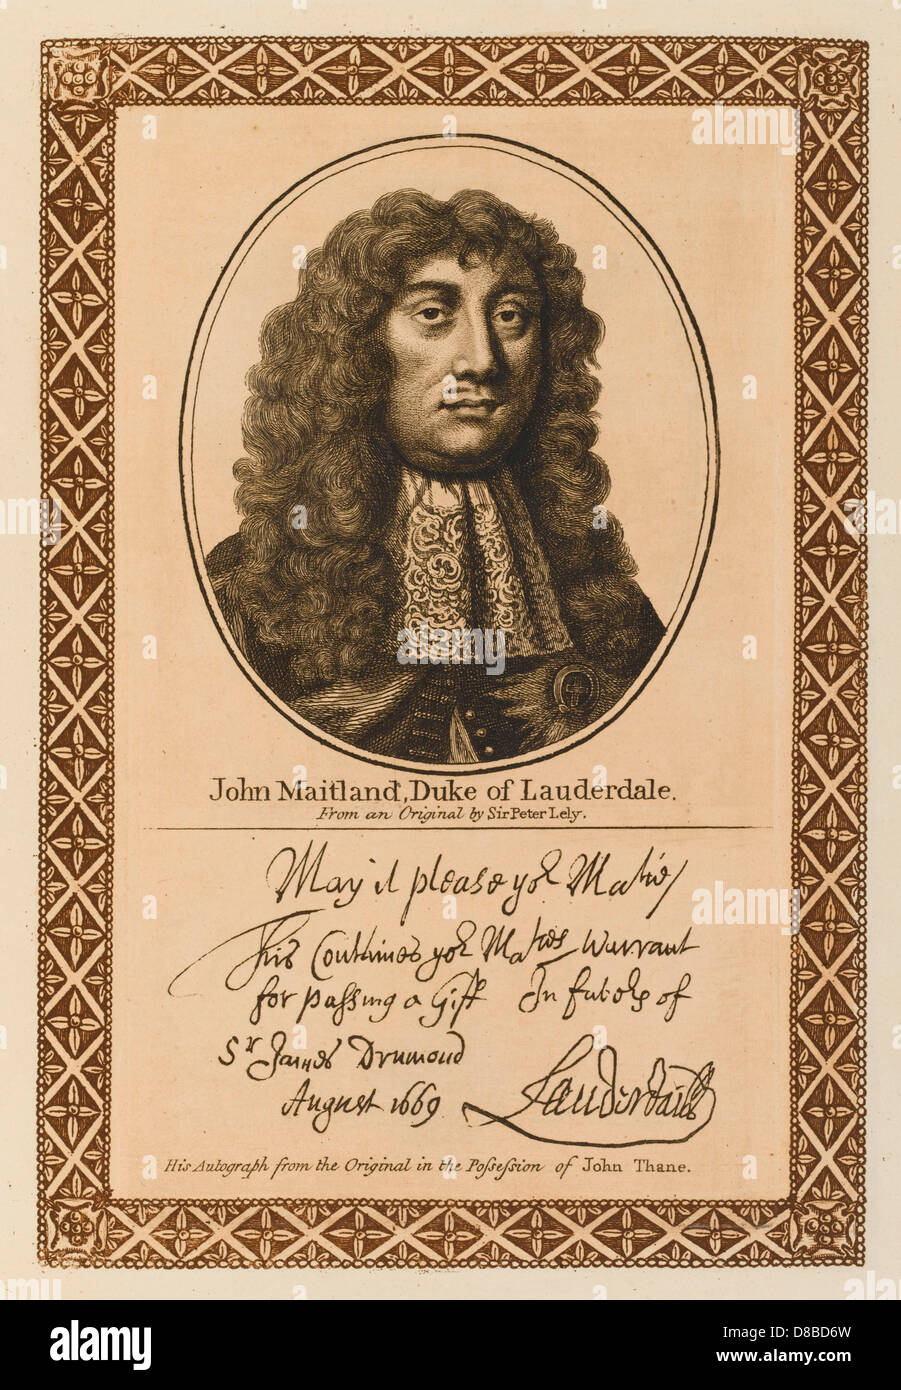 John Maitland, Duke of Lauderdale.
From an Original by Sir Peter Lely.
May it please yor Matie
This Containes yor Maties warrant
for passing a Gift In favors of
Sr James Drumond
August 1669 Lauderdaill
His Autograph from the Original in the Possession of John Thane.
alamy
Image ID: D8BD6W
www.alamy.com